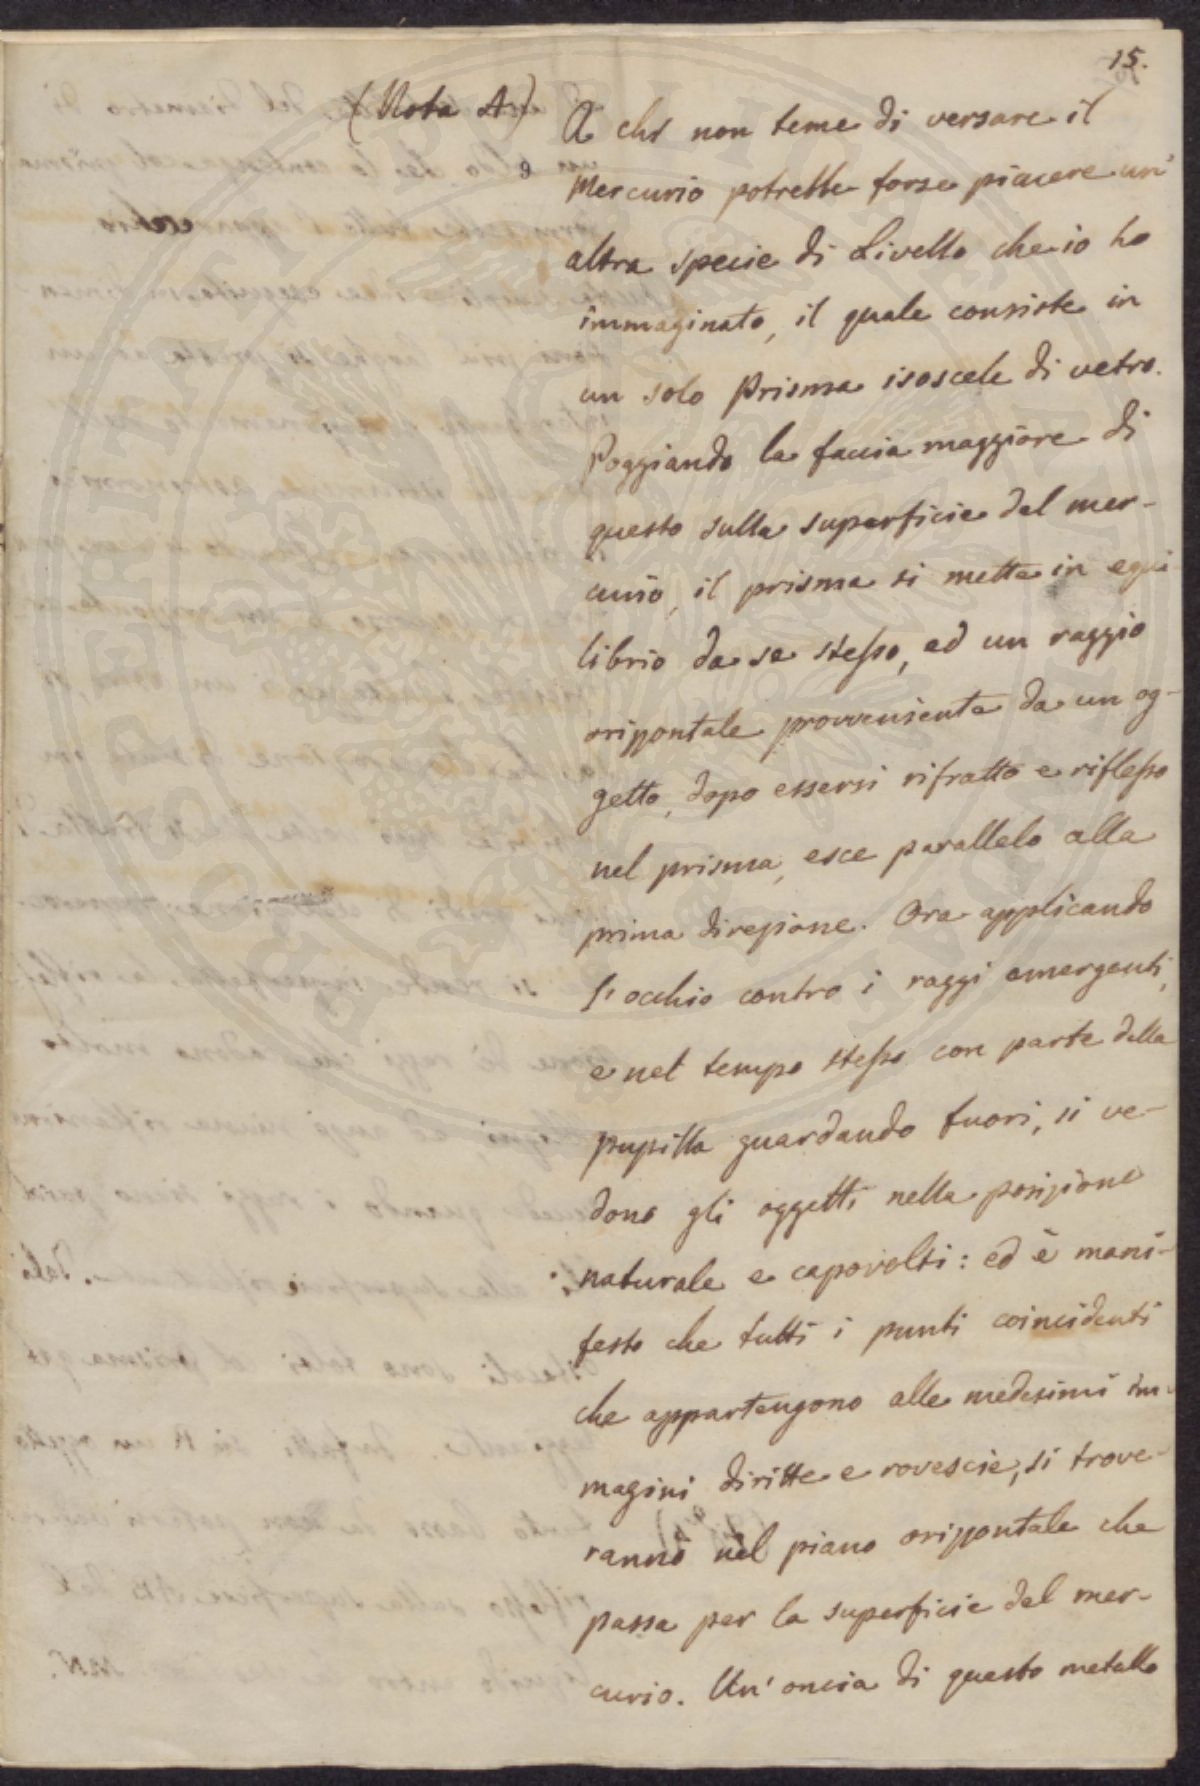 15.
(Nota A) A chi non teme di versare il
Mercurio potrebbe forse piacere un'
altra specie di Livello che io ho
immaginato, il quale consiste in
un solo Prisma isoscele di vetro.
Poggiando la faccia maggiore di
questo sulla superficie del mer-
curio, il prisma si mette in equi-
librio da se stesso, ed un raggio
orizzontale provveniente da un og-
getto, dopo essersi rifratto e riflesso
nel prisma, esce parallelo alla
prima direzione. Ora applicando
l'occhio contro i raggi emergenti,
e nel tempo stesso con parte della
pupilla guardando fuori, si ve-
dono gli oggetti nella posizione
naturale e capovolti: ed è mani-
festo che tutti i punti coincidenti
che appartengono alle medesimi im-
magini diritte e rovescie, si trove-
ranno nel piano orizzontale che
passa per la superficie del mer-
curio. Un'oncia di questo metallo